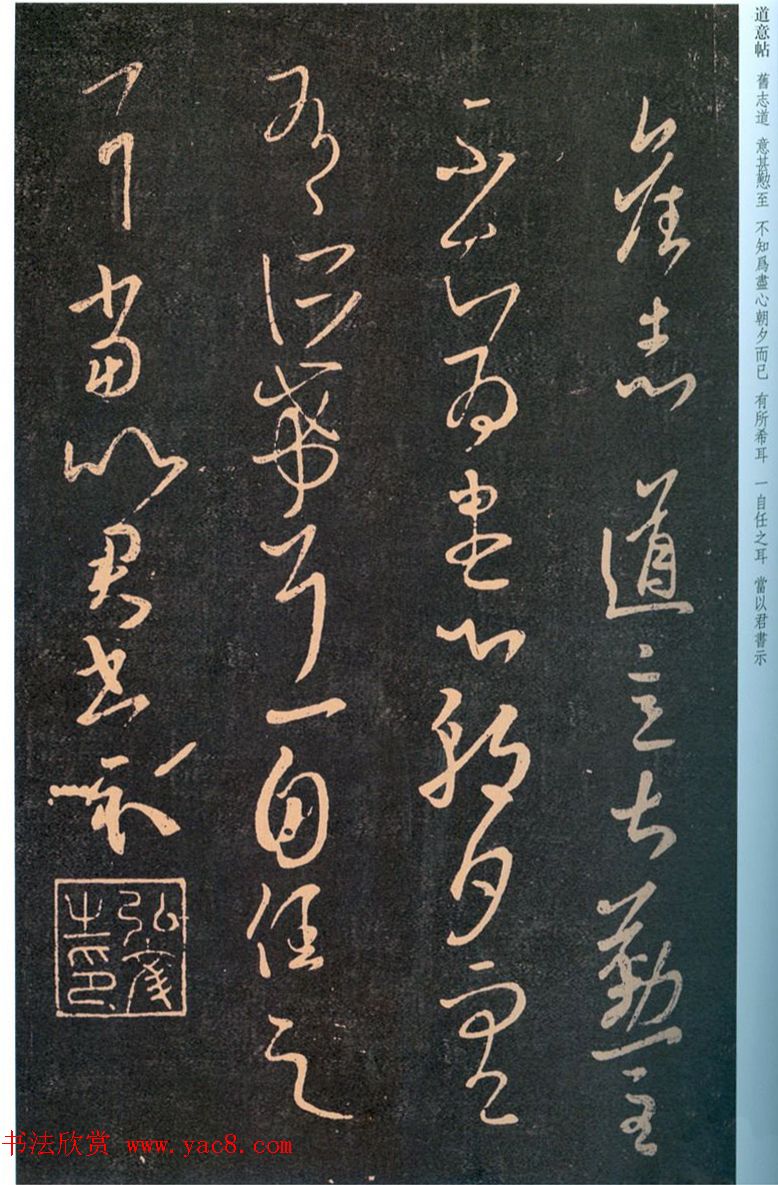 道意帖 舊志道 意甚懃至 不知爲盡心朝夕而已 有所希耳 一自任之耳 當以君書示
舊志道意甚懃至
不知爲盡心朝夕而已
有所希耳一自任之
耳當以君書示
弘度
之印
书法欣赏 www.yac8.com